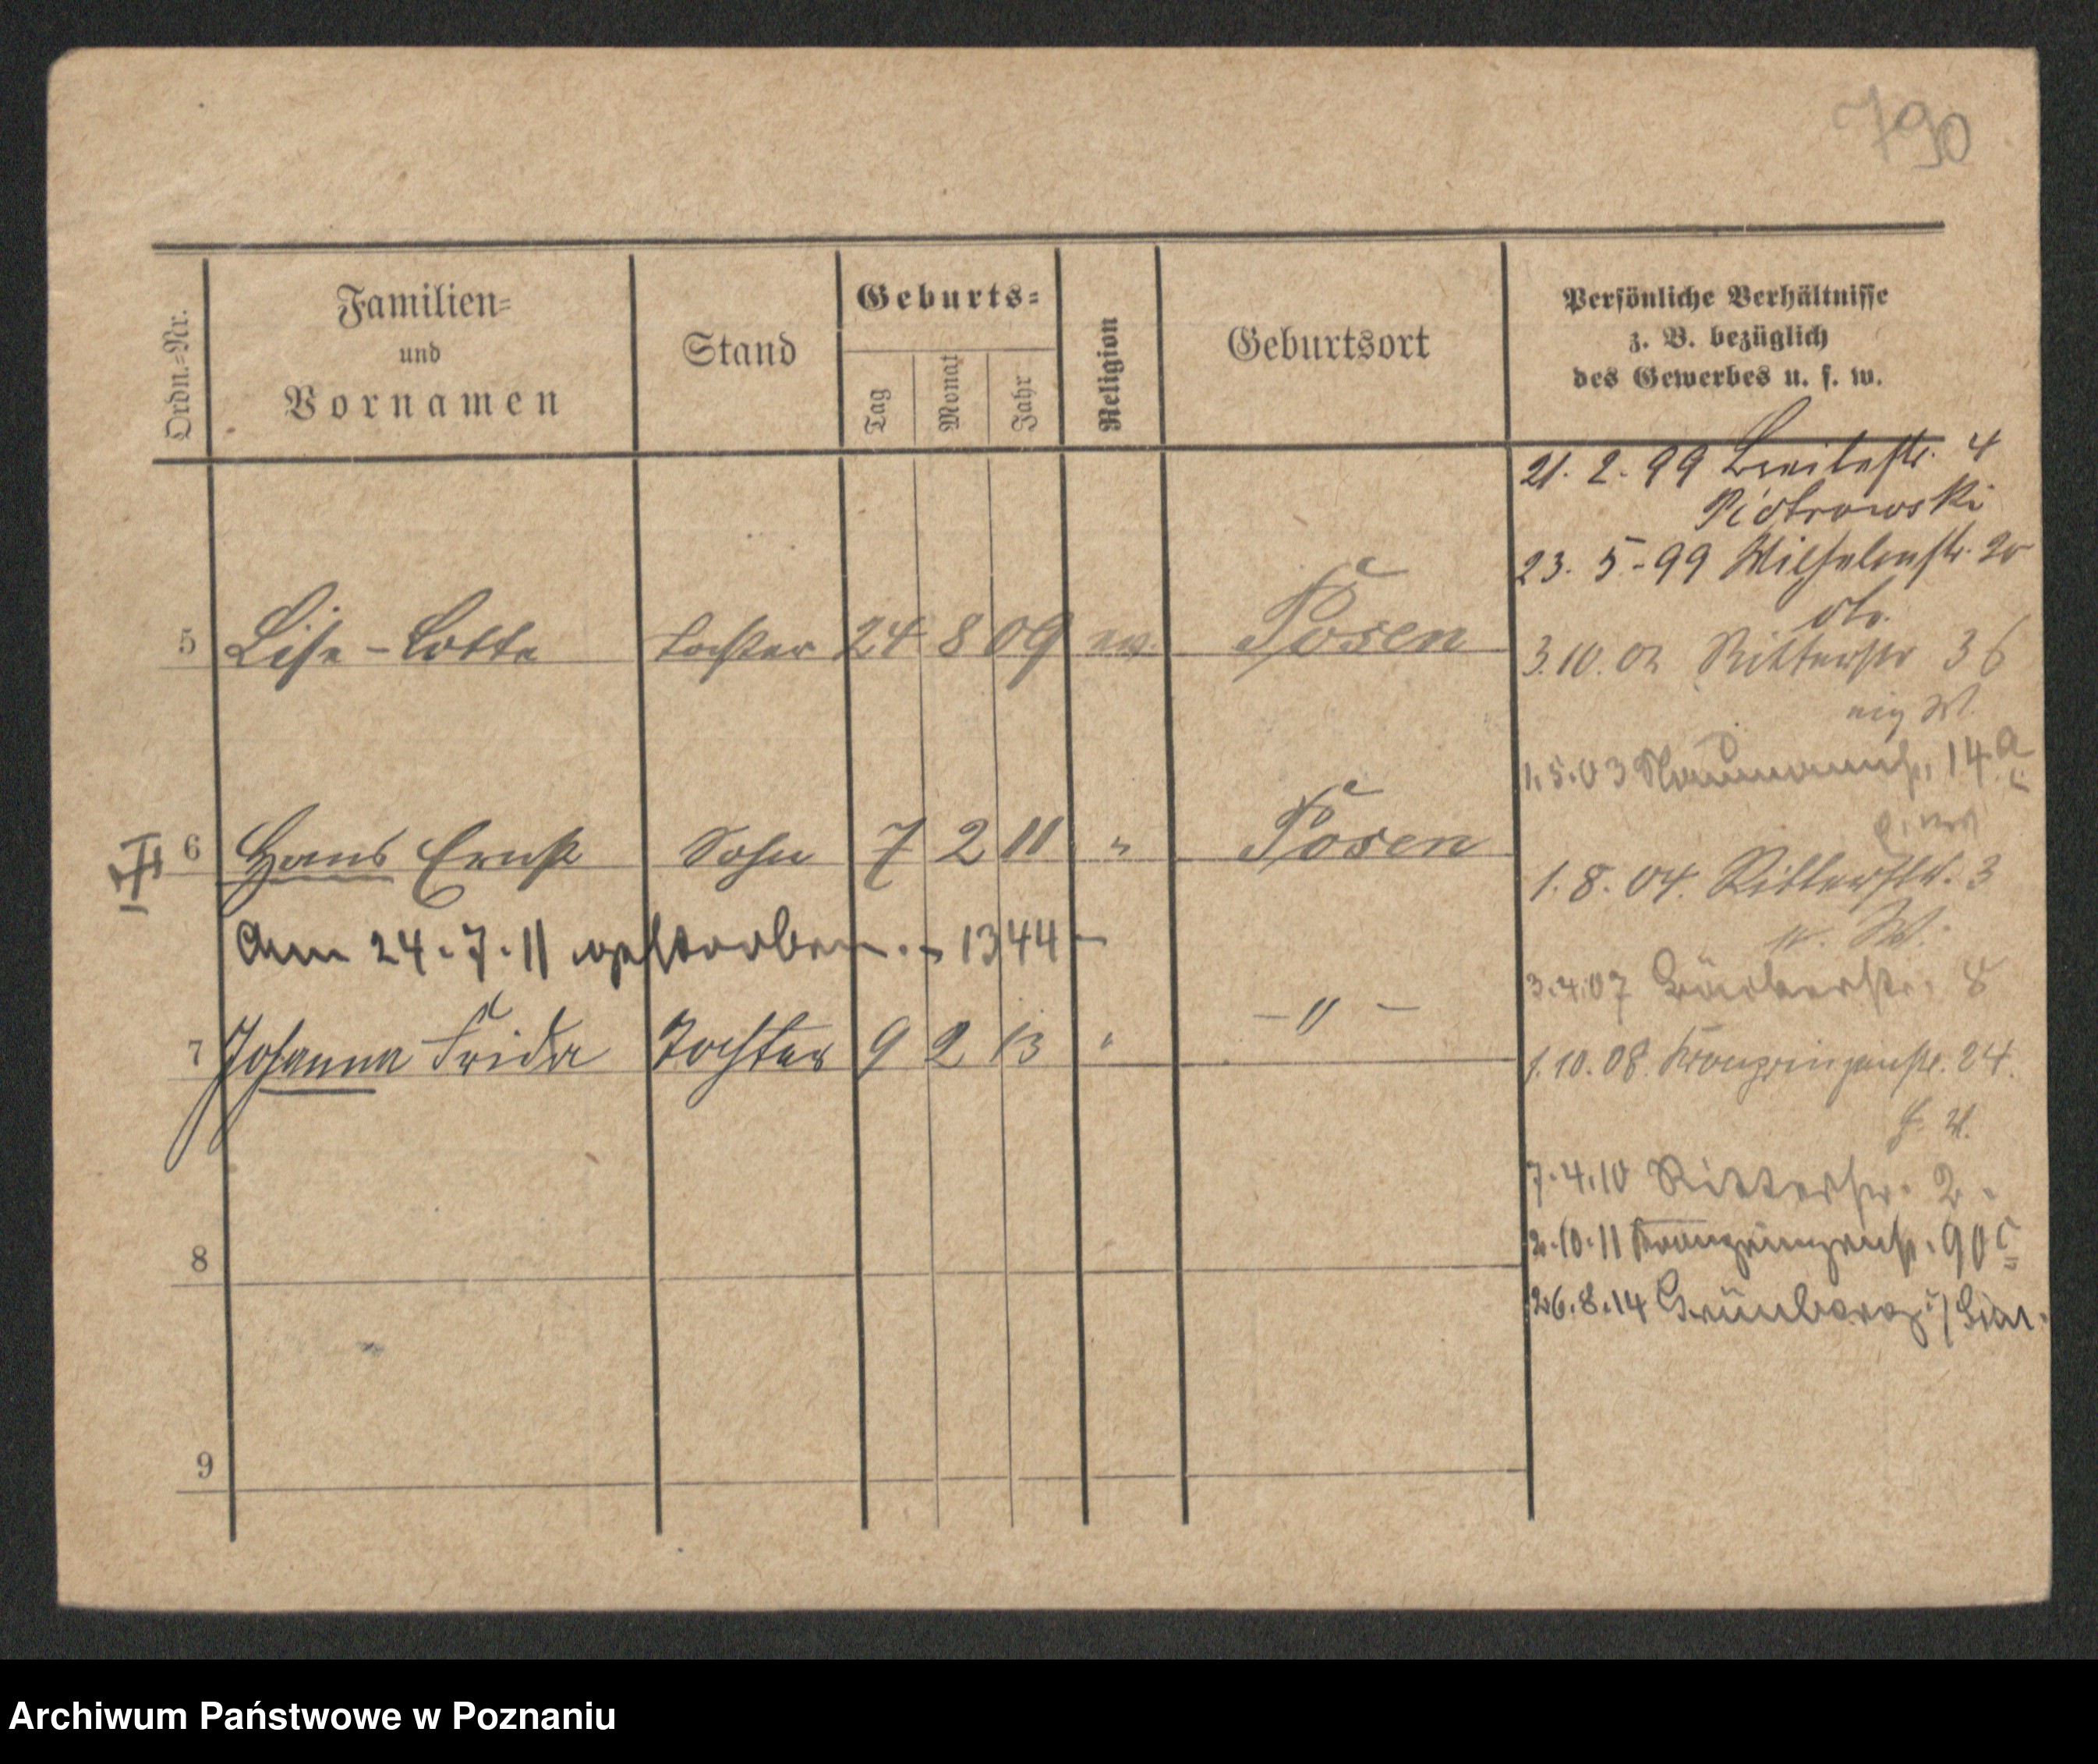 790
Ordn.-Nr.
Familien-
und
Vornamen
Stand
Geburts-
Tag
Monat
Jahr
Religion
Geburtsort
Persönliche Verhältnisse
z. B. bezüglich
des Gewerbes u. s. w.
21. 2. 99 Breitestr. 4
Piotrowski
23. 5. 99 Wilhelmstr. 20
5 Lise-Lotte Tochter 24 8 09 ev. Posen
3.10.02 Ritterstr 36
1.5.03 Naumannstr. 14a
6 Hans Ernst Sohn 7 2 11 " Posen
1. 8. 04. Ritterstr. 3
Am 24.7.11 gestorben. - 1344 -
3.4.07 Gärtnerstr. 8
7 Johanna Frida Tochter 9 2 13 " - " -
1.10.08. Kronprinzenstr. 24.
7.4.10 Ritterstr. 2
8
2.10.11 Kronprinzenstr. 90c
26.8.14 Grünberg
9
Archiwum Państwowe w Poznaniu